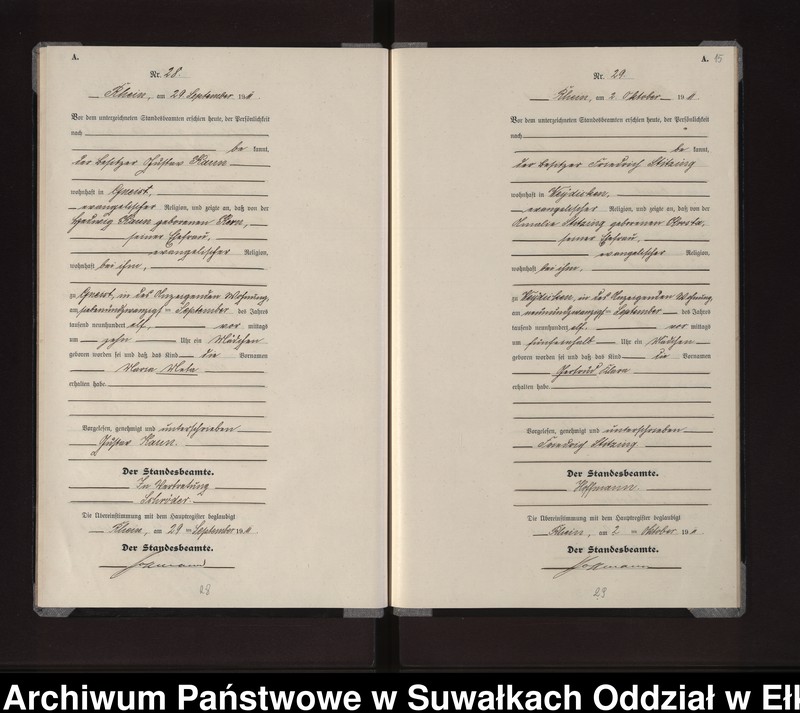 A.
Nr. 28.
Rhein, am 29. September 1911
Vor dem unterzeichneten Standesbeamten erschien heute, der Persönlichkeit
nach
be kannt,
der Besitzer Gustav Kann
wohnhaft in Gneist,
evangelischer Religion, und zeigte an, daß von der
Hedwig Kann geborenen Kern,
seiner Ehefrau,
evangelischer Religion,
wohnhaft bei ihm,
zu Gneist, in des Anzeigenden Wohnung,
am siebenundzwanzigsten September des Jahres
tausend neunhundert elf, vor mittags
um zehn Uhr ein Mädchen
geboren worden sei und daß das Kind die Vornamen
Maria Meta
erhalten habe.
Vorgelesen, genehmigt und unterschrieben
Gustav Kann.
Der Standesbeamte.
In Vertretung
Schröder
Die Übereinstimmung mit dem Hauptregister beglaubigt
Rhein, am 29 ten September 1911
Der Standesbeamte.
Hoffmann
28
A. 15
Nr. 29.
Rhein, am 2. Oktober 1911
Vor dem unterzeichneten Standesbeamten erschien heute, der Persönlichkeit
nach
be kannt,
der Besitzer Friedrich Stotzing
wohnhaft in Weydicken,
evangelischer Religion, und zeigte an, daß von der
Amalie Stotzing geborenen
seiner Ehefrau,
evangelischer Religion,
wohnhaft bei ihm,
zu Weydicken, in des Anzeigenden Wohnung,
am neunundzwanzigsten September des Jahres
tausend neunhundert elf vor mittags
um fünfeinhalb Uhr ein Mädchen
geboren worden sei und daß das Kind die Vornamen
Gertrud Klara
erhalten habe.
Vorgelesen, genehmigt und unterschrieben
Friedrich Stotzing
Der Standesbeamte.
Hoffmann.
Die Übereinstimmung mit dem Hauptregister beglaubigt
Rhein, am 2 ten Oktober 1911
Der Standesbeamte.
Hoffmann
29
Archiwum Państwowe w Suwałkach Oddział w Ełk